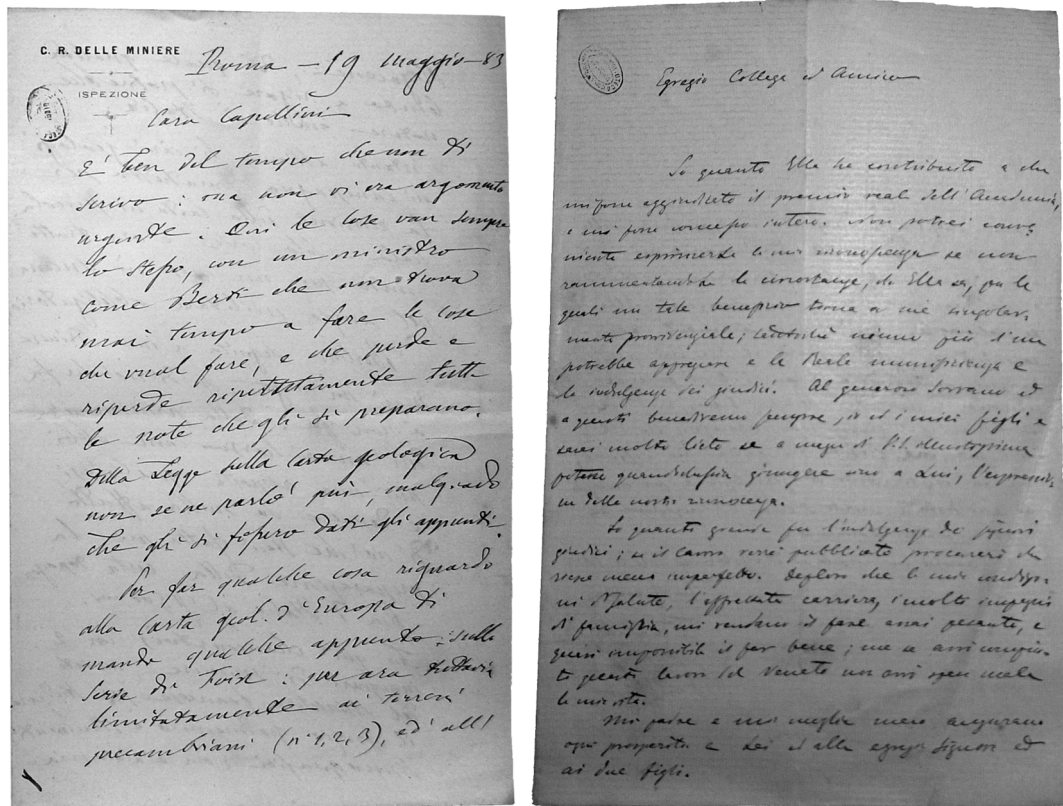 C. R. DELLE MINIERE
ISPEZIONE
Roma - 19 maggio - 83
Caro Capellini
E' ben del tempo che non ti
scrivo: ma non vi era argomento
urgente. Qui le cose van sempre
lo stesso, con un ministro
come Berti che non trova
mai tempo a fare le cose
che vuol fare, e che perde e
riperde ripetutamente tutte
le note che gli si preparano.
Della Legge sulla Carta geologica
non se ne parlò più, malgrado
che gli si fossero dati gli appunti.
Per far qualche cosa riguardo
alla Carta geol. d'Europa ti
mando qualche appunto sulla
serie di : per ora tuttavia
limitatamente ai terreni
precambriani (n° 1, 2, 3), ed all'
Egregio Collega ed Amico
So quanto Ella ha contribuito a che
mi fosse aggiudicato il premio reale dell'Accademia,
e mi fosse concesso intero. Non potrei
esprimerle la mia riconoscenza se non
rammentandole le circostanze, che Ella sa, per le
quali un tale beneficio torna a me singolar
mente provvidenziale; niuno più di me
potrebbe apprezzare e la Reale munificenza e
la indulgenza dei giudici. Al generoso Sovrano ed
a questi benediremo sempre io ed i miei figli e
sarei molto lieto se a mezzo di
potesse giungere sino a Lui, l'espressio
ne della nostra riconoscenza.
So quanto grande fu l'indulgenza dei signori
giudici; se il lavoro verrà pubblicato procurerò che
riesca meno imperfetto. Deploro che le mie condizio
ni di salute, carriera, i molti impegni
di famiglia, mi rendano il fare assai pesante, e
quasi impossibile il far bene; ma se
questo lavoro sul Veneto non avrò speso male
la mia vita.
Mio padre e mia moglie meco augurano
ogni prosperità a Lei ed alla egregia Signora ed
ai due figli.